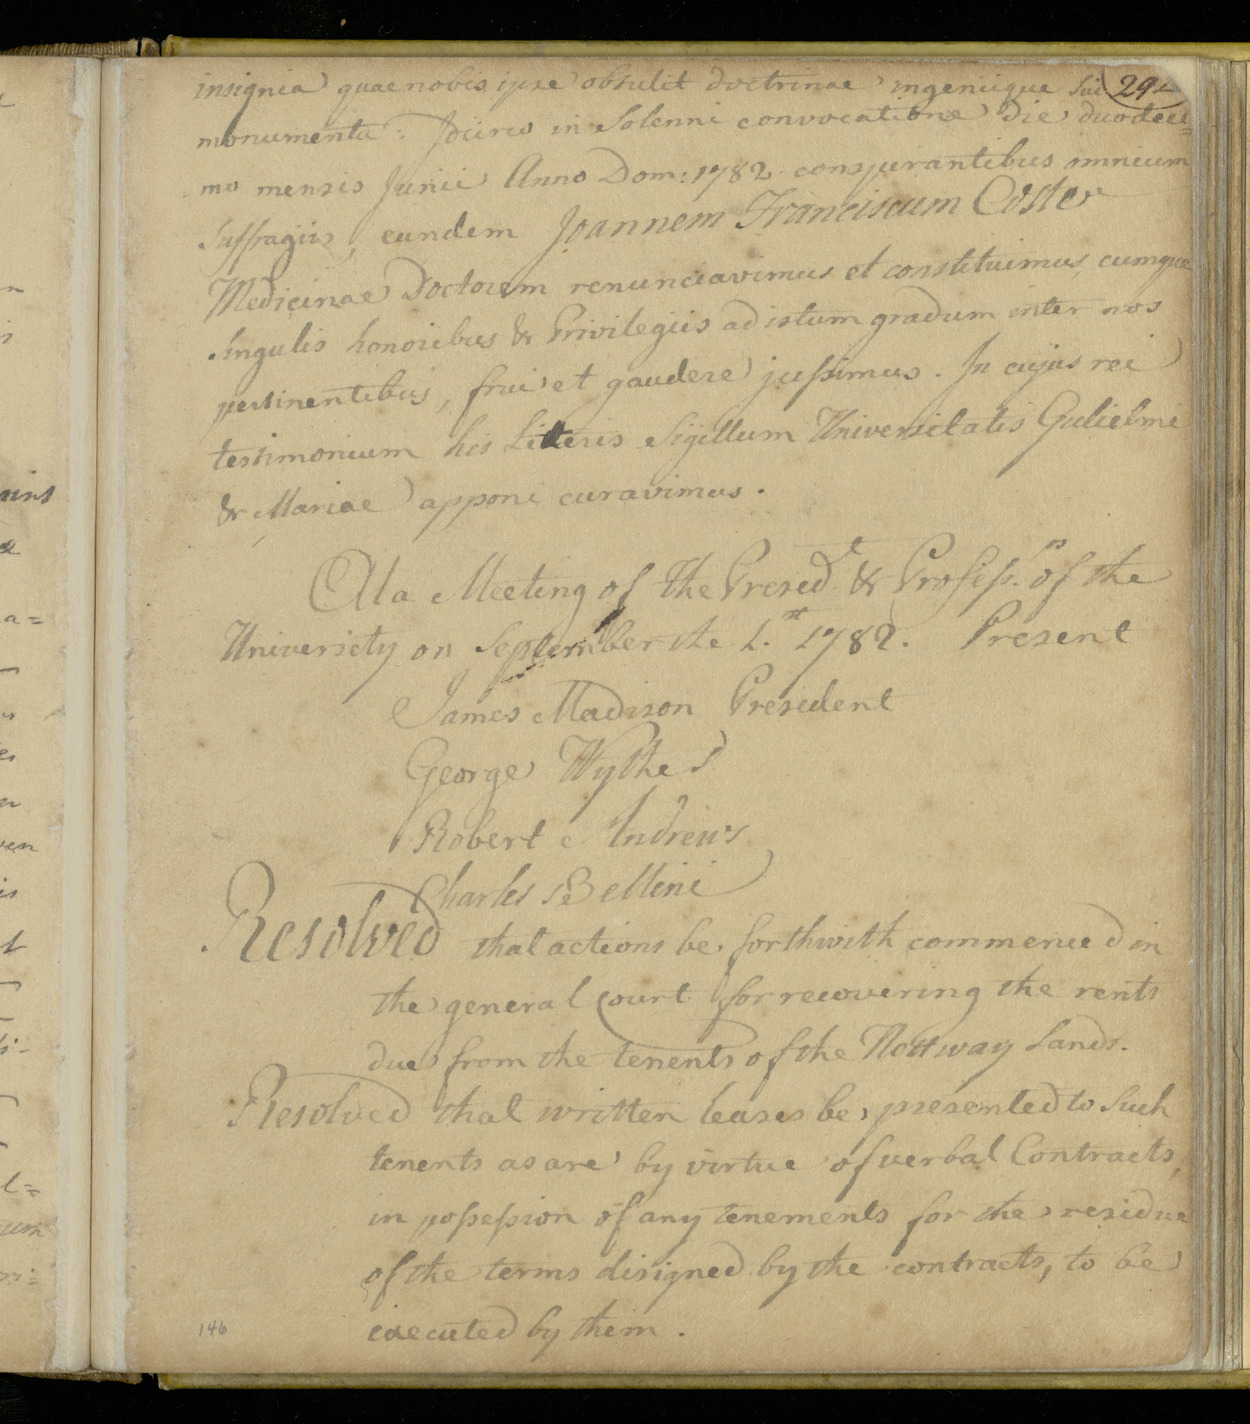 insignia quae nobis ipse obtulit doctrinae ingeniique sui 29
monumenta: in Solenni convocatione die duodeci=
mo mensis Junii Anno Dom: 1782 conspirantibus omnium
Suffragiis, eundem Joannem Franciscum Coste
Medicinae Doctorem renunciavimus et constituimus, cumque
Singulis honoribus & Privilegiis ad istum gradum inter nos
pertinentibus, frui et gaudere jussimus. In cujus rei
testimonium his Litteris Sigillum Universitatis Gulielmi
& Mariae apponi curavimus.
At a Meeting of the Presid.t & Profess.rs of the
University on September the 1.st 1782. Present
James Madison President
George Wythe
Robert Andrews
Charles Bellini
Resolved that actions be forthwith commenced in
the general Court for recovering the rents
due from the tenents of the Nottway Lands.
Resolved that written leases be presented to Such
tenents as are by virtue of verbal Contracts,
in possession of any tenements for the residue
of the terms disigned by the contracts, to be
executed by them.
146